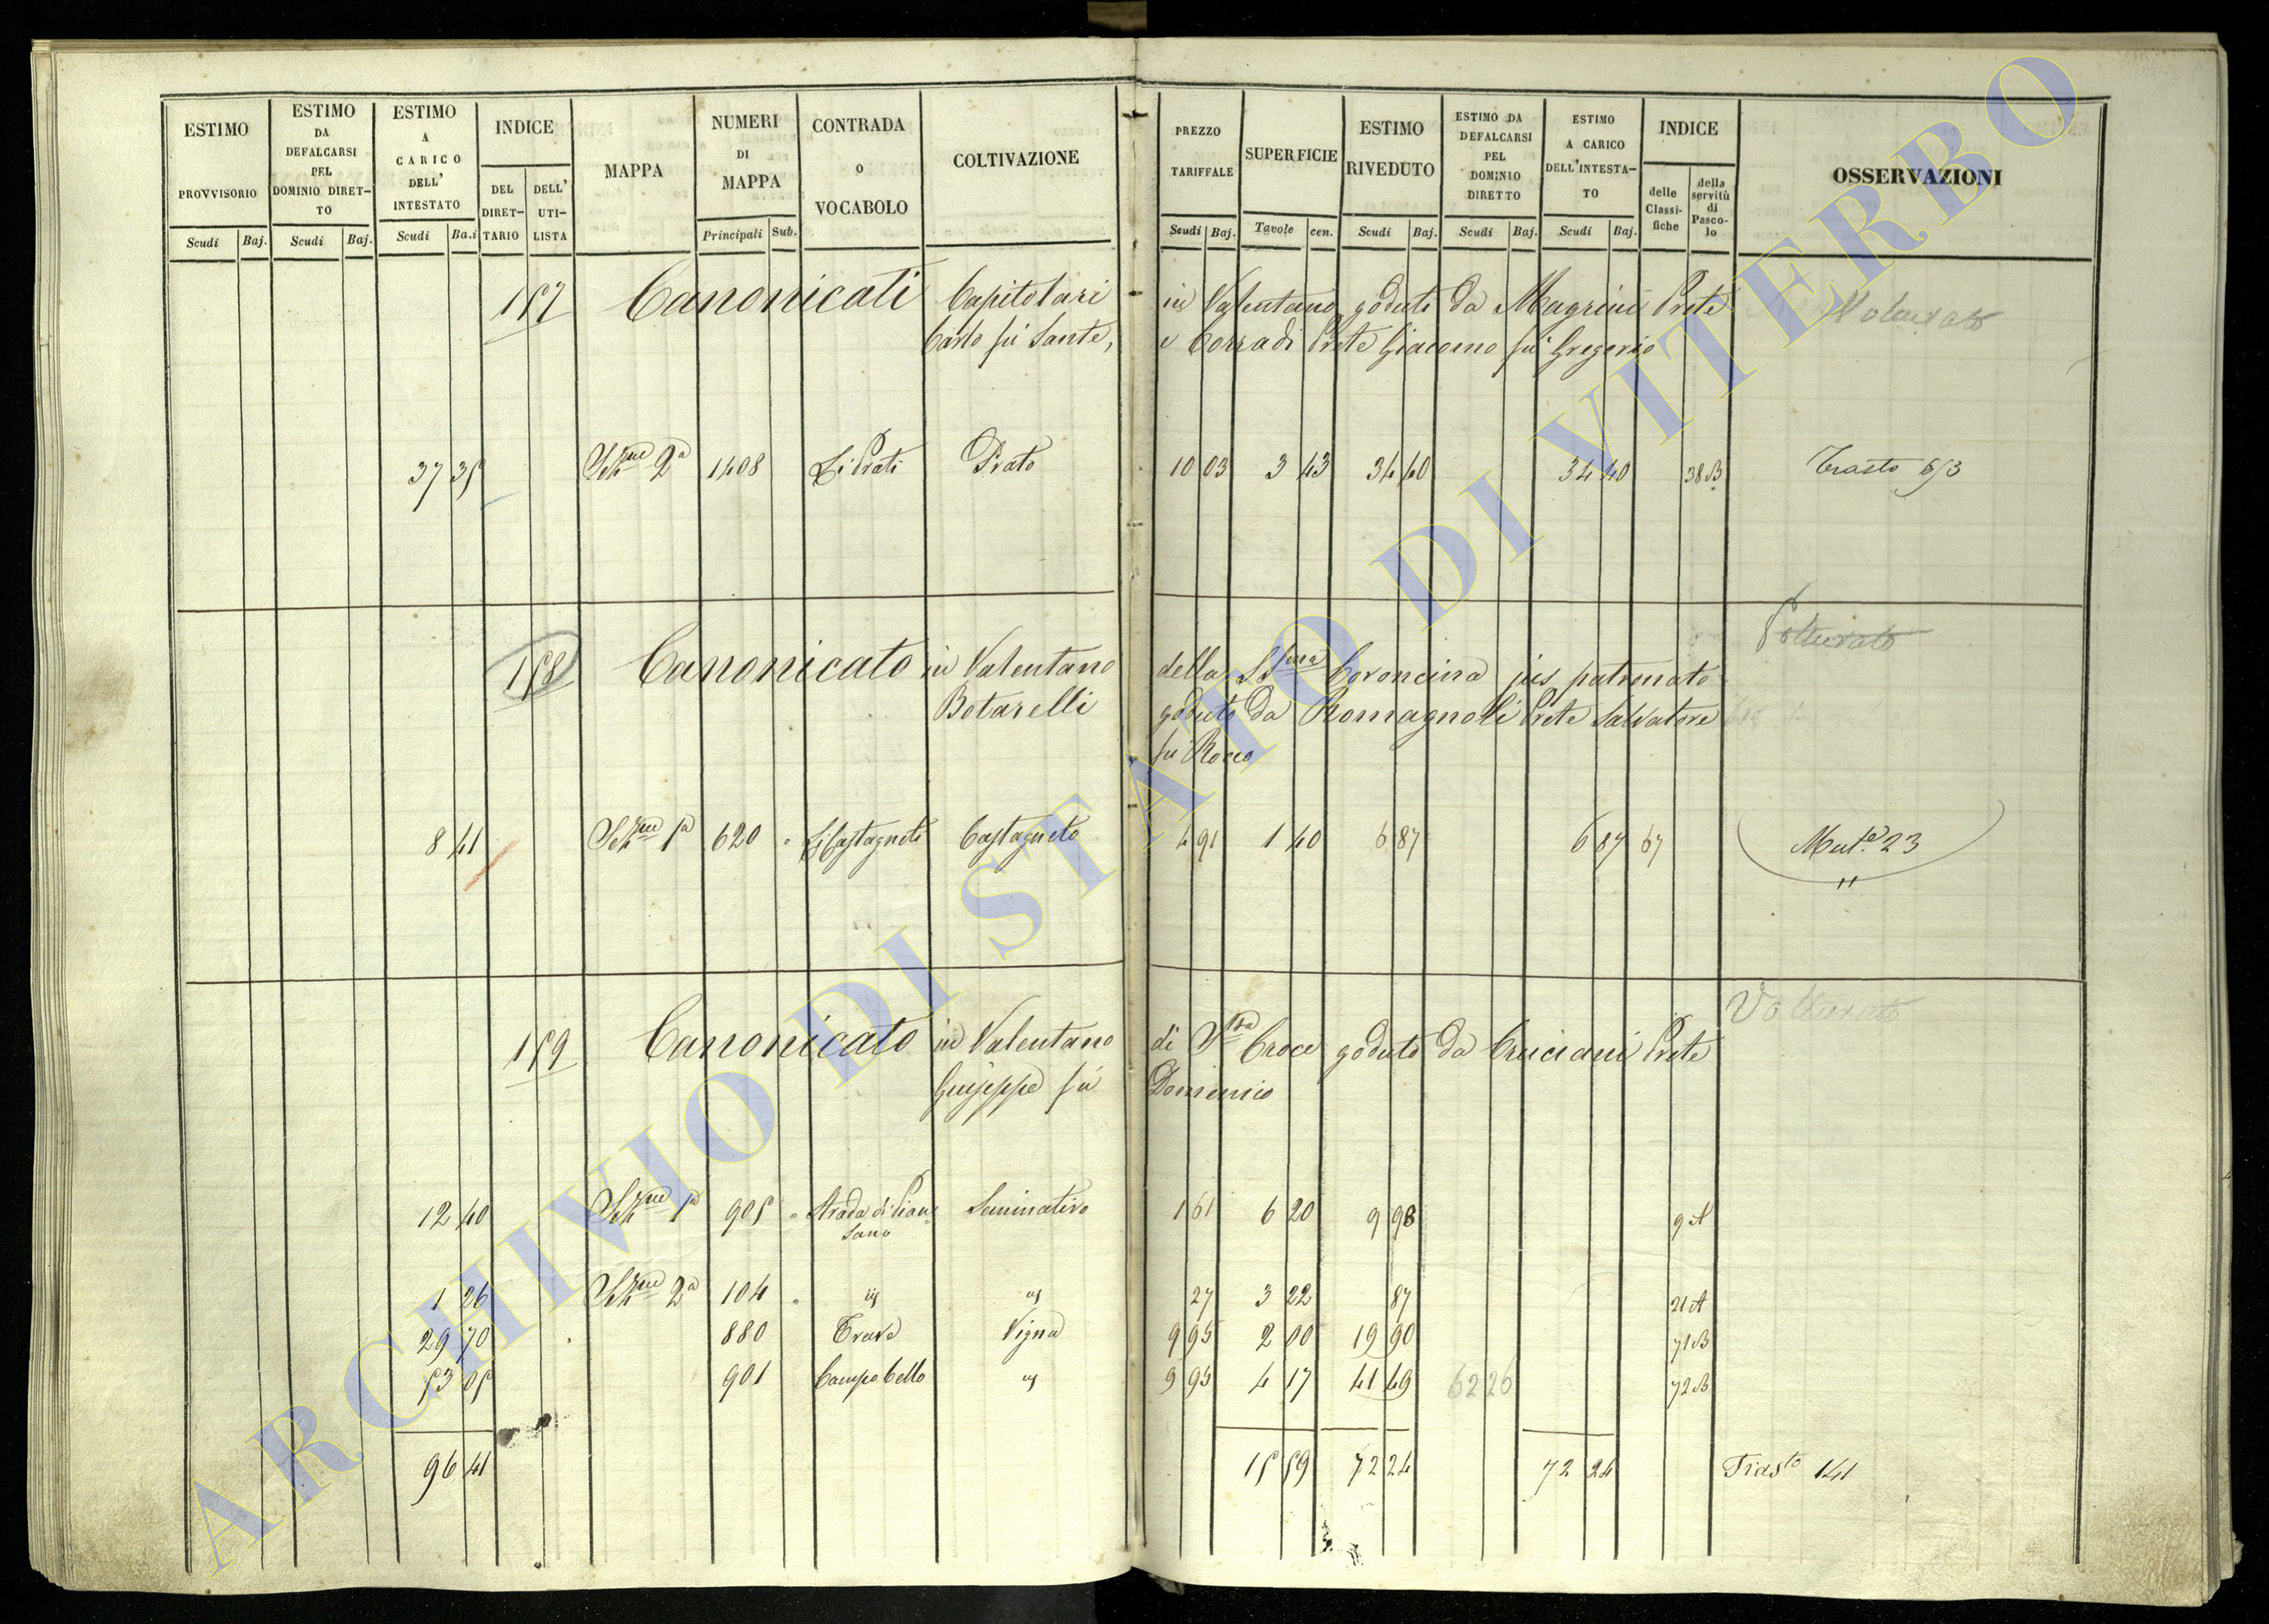 ESTIMO PROVVISORIO Scudi Baj.
ESTIMO DA DEFALCARSI PEL DOMINIO DIRET-TO Scudi Baj.
ESTIMO A CARICO DELL' INTESTATO Scudi Ba.i
INDICE DEL DIRET-TARIO DELL' UTI-LISTA
MAPPA
NUMERI DI MAPPA Principali Sub.
CONTRADA o VOCABOLO
COLTIVAZIONE
PREZZO TARIFFALE Scudi Baj.
SUPERFICIE Tavole cen.
ESTIMO RIVEDUTO Scudi Baj.
ESTIMO DA DEFALCARSI PEL DOMINIO DIRETTO Scudi Baj.
ESTIMO A CARICO DELL'INTESTA-TO Scudi Baj.
INDICE delle Classi-fiche della servitù di Pasco-lo
OSSERVAZIONI
157 Canonicati Capitolari in Valentano goduti da Magrini Prete
Carlo fù Sante, e Corradi Prete Giacomo fù Gregorio
37 35 Sezne 2a 1408 Li Prati Prato 10 03 3 43 34 40 34 40 38 B Trasto 653
Volturato
158 Canonicato in Valentano della SSma Coroncina jus patronato
Botarelli goduto da Romagnoli Prete Salvatore
fù Rocco
8 41 Sezne 1a 620 Li Castagneti Castagneto 4 91 1 40 6 87 6 87 67 Muta 23
Volturato
159 Canonicato in Valentano di Sta Croce goduto da Cruciani Prete
Giuseppe fù Domenico
12 40 Sezne 1a 905 Strada di Pian=sano Seminativo 1 61 6 20 9 98 9 A
1 26 Sezne 2a 104 27 3 22 87 21 A
29 70 880 Vigna 9 95 2 00 19 90 71 B
53 05 901 Campo bello 9 95 4 17 41 49 62 26 72 B
96 41 15 59 72 24 72 24 Trasto 141
ARCHIVIO DI STATO DI VITERBO